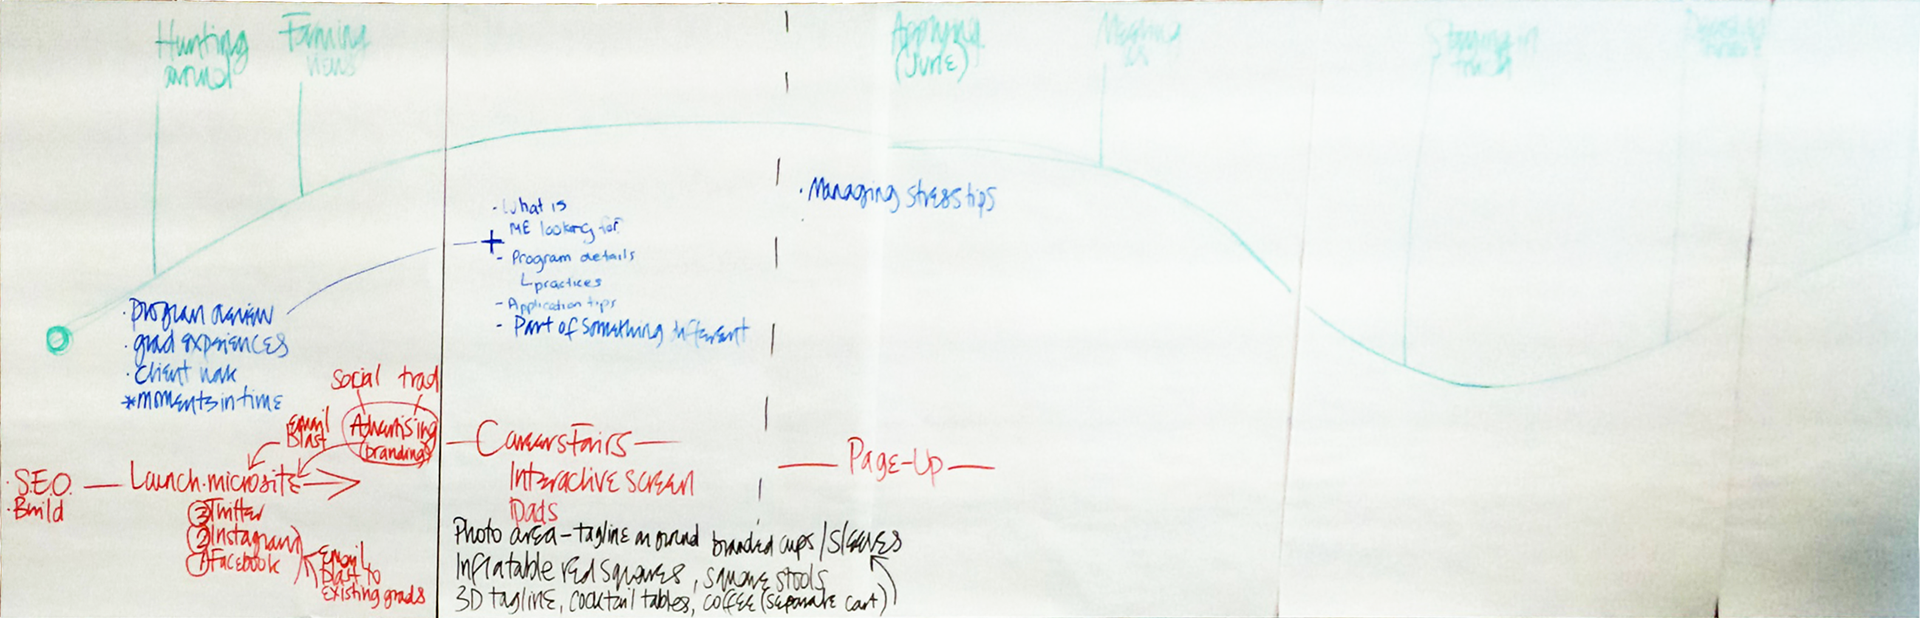 Hunting
around
Farming
views
Applying
(June)
Meeting
us
Staying in
touch
· Managing stress tips
- What is
ME looking for
+
- Program details
practices
- Application tips
- Part of something different
· Program review
· grad experiences
· Client
* moments in time
Social trad
Email
Blast
Advertising
(branding)
· S.E.O.
· Build
Launch microsite
③ Twitter
② Instagram
① Facebook
Email
blast to
existing grads
Careers Fairs
Interactive screen
iPads
Page-Up
Photo area - tagline around branded cups / sleeves
Inflatable red squares, square stools
3D tagline, cocktail tables, coffee (separate cart)